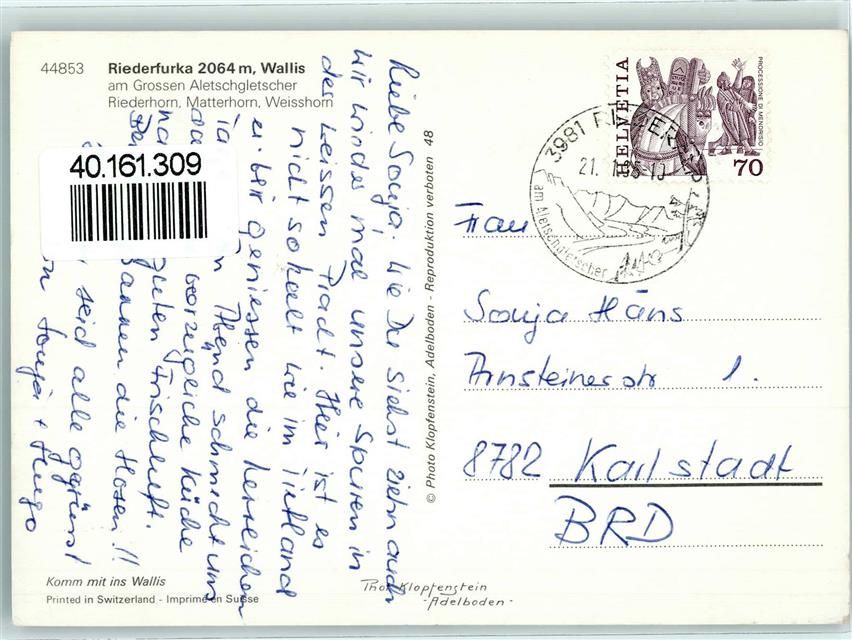 44853 Riederfurka 2064 m, Wallis
am Grossen Aletschgletscher
Riederhorn, Matterhorn, Weisshorn
40.161.309
Liebe Sonja, Wie Du siehst ziehn auch
wir wieder mal unsere Spuren in
der weissen Pracht. Hier ist es
nicht so kalt wie im Tiefland
wir geniessen die herrlichen
Abend schmeckt uns
vorzügliche Küche
guten Frischluft.
spannen die Hosen!!
seid alle gegrüsst
Sonja + Hugo
© Photo Klopfenstein, Adelboden - Reproduktion verboten 48
HELVETIA
PROCESSIONE DI MENDRISIO
70
3981 RIEDERALP
21. 1.
am Aletschgletscher
Frau
Sonja Häns
Arnsteinerstr 1.
8782 Karlstadt
BRD
Komm mit ins Wallis
Printed in Switzerland - Imprimé en Suisse
Photo Klopfenstein
-Adelboden-